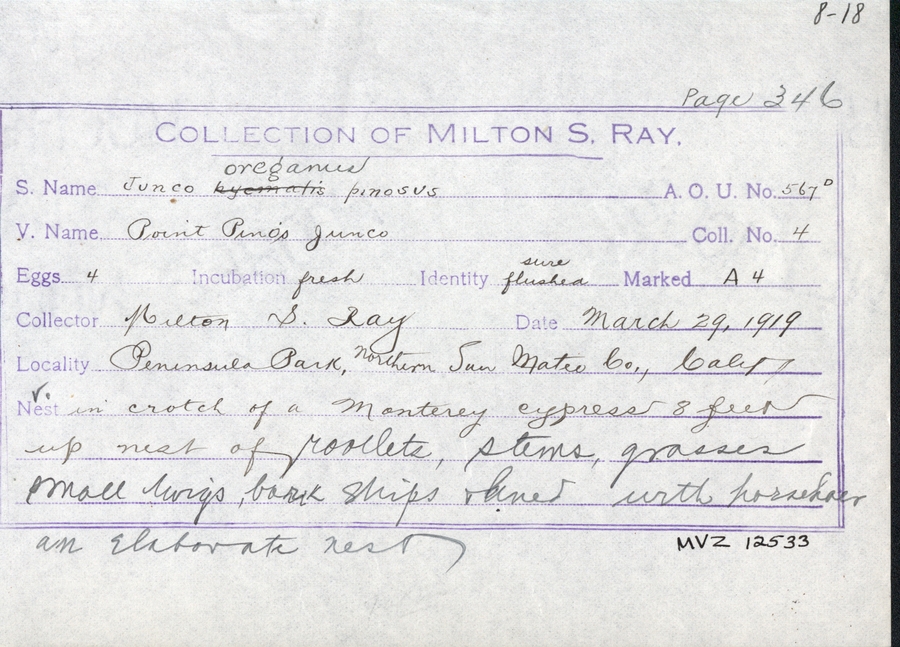 8-18
Page 346
COLLECTION OF MILTON S. RAY.
oreganus
S. Name Junco hyemalis pinosus A. O. U. No. 567D
V. Name Point Pinos Junco Coll. No. 4
sure
Eggs 4 Incubation fresh Identity flushed Marked A 4
Collector Milton S. Ray Date March 29, 1919
Locality Peninsula Park, Northern San Mateo Co., Calif
Nest in crotch of a Monterey cypress 8 feet
up nest of rootlets, stems, grasses
small twigs, bark strips lined with horsehair
an elaborate nest
MVZ 12533